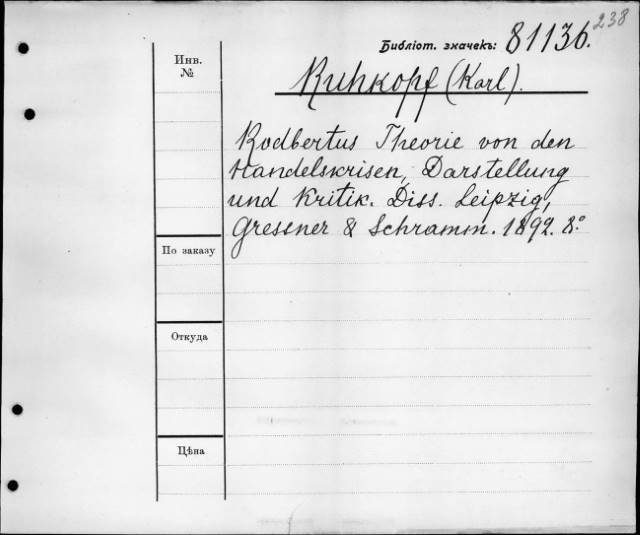 238
Библіот. значекъ: 81136.
Инв.
№
Ruhkopf (Karl).
Rodbertus Theorie von den
Handelskrisen, Darstellung
und Kritik. Diss. Leipzig,
Gressner & Schramm. 1892. 8.º
По заказу
Откуда
Цѣна